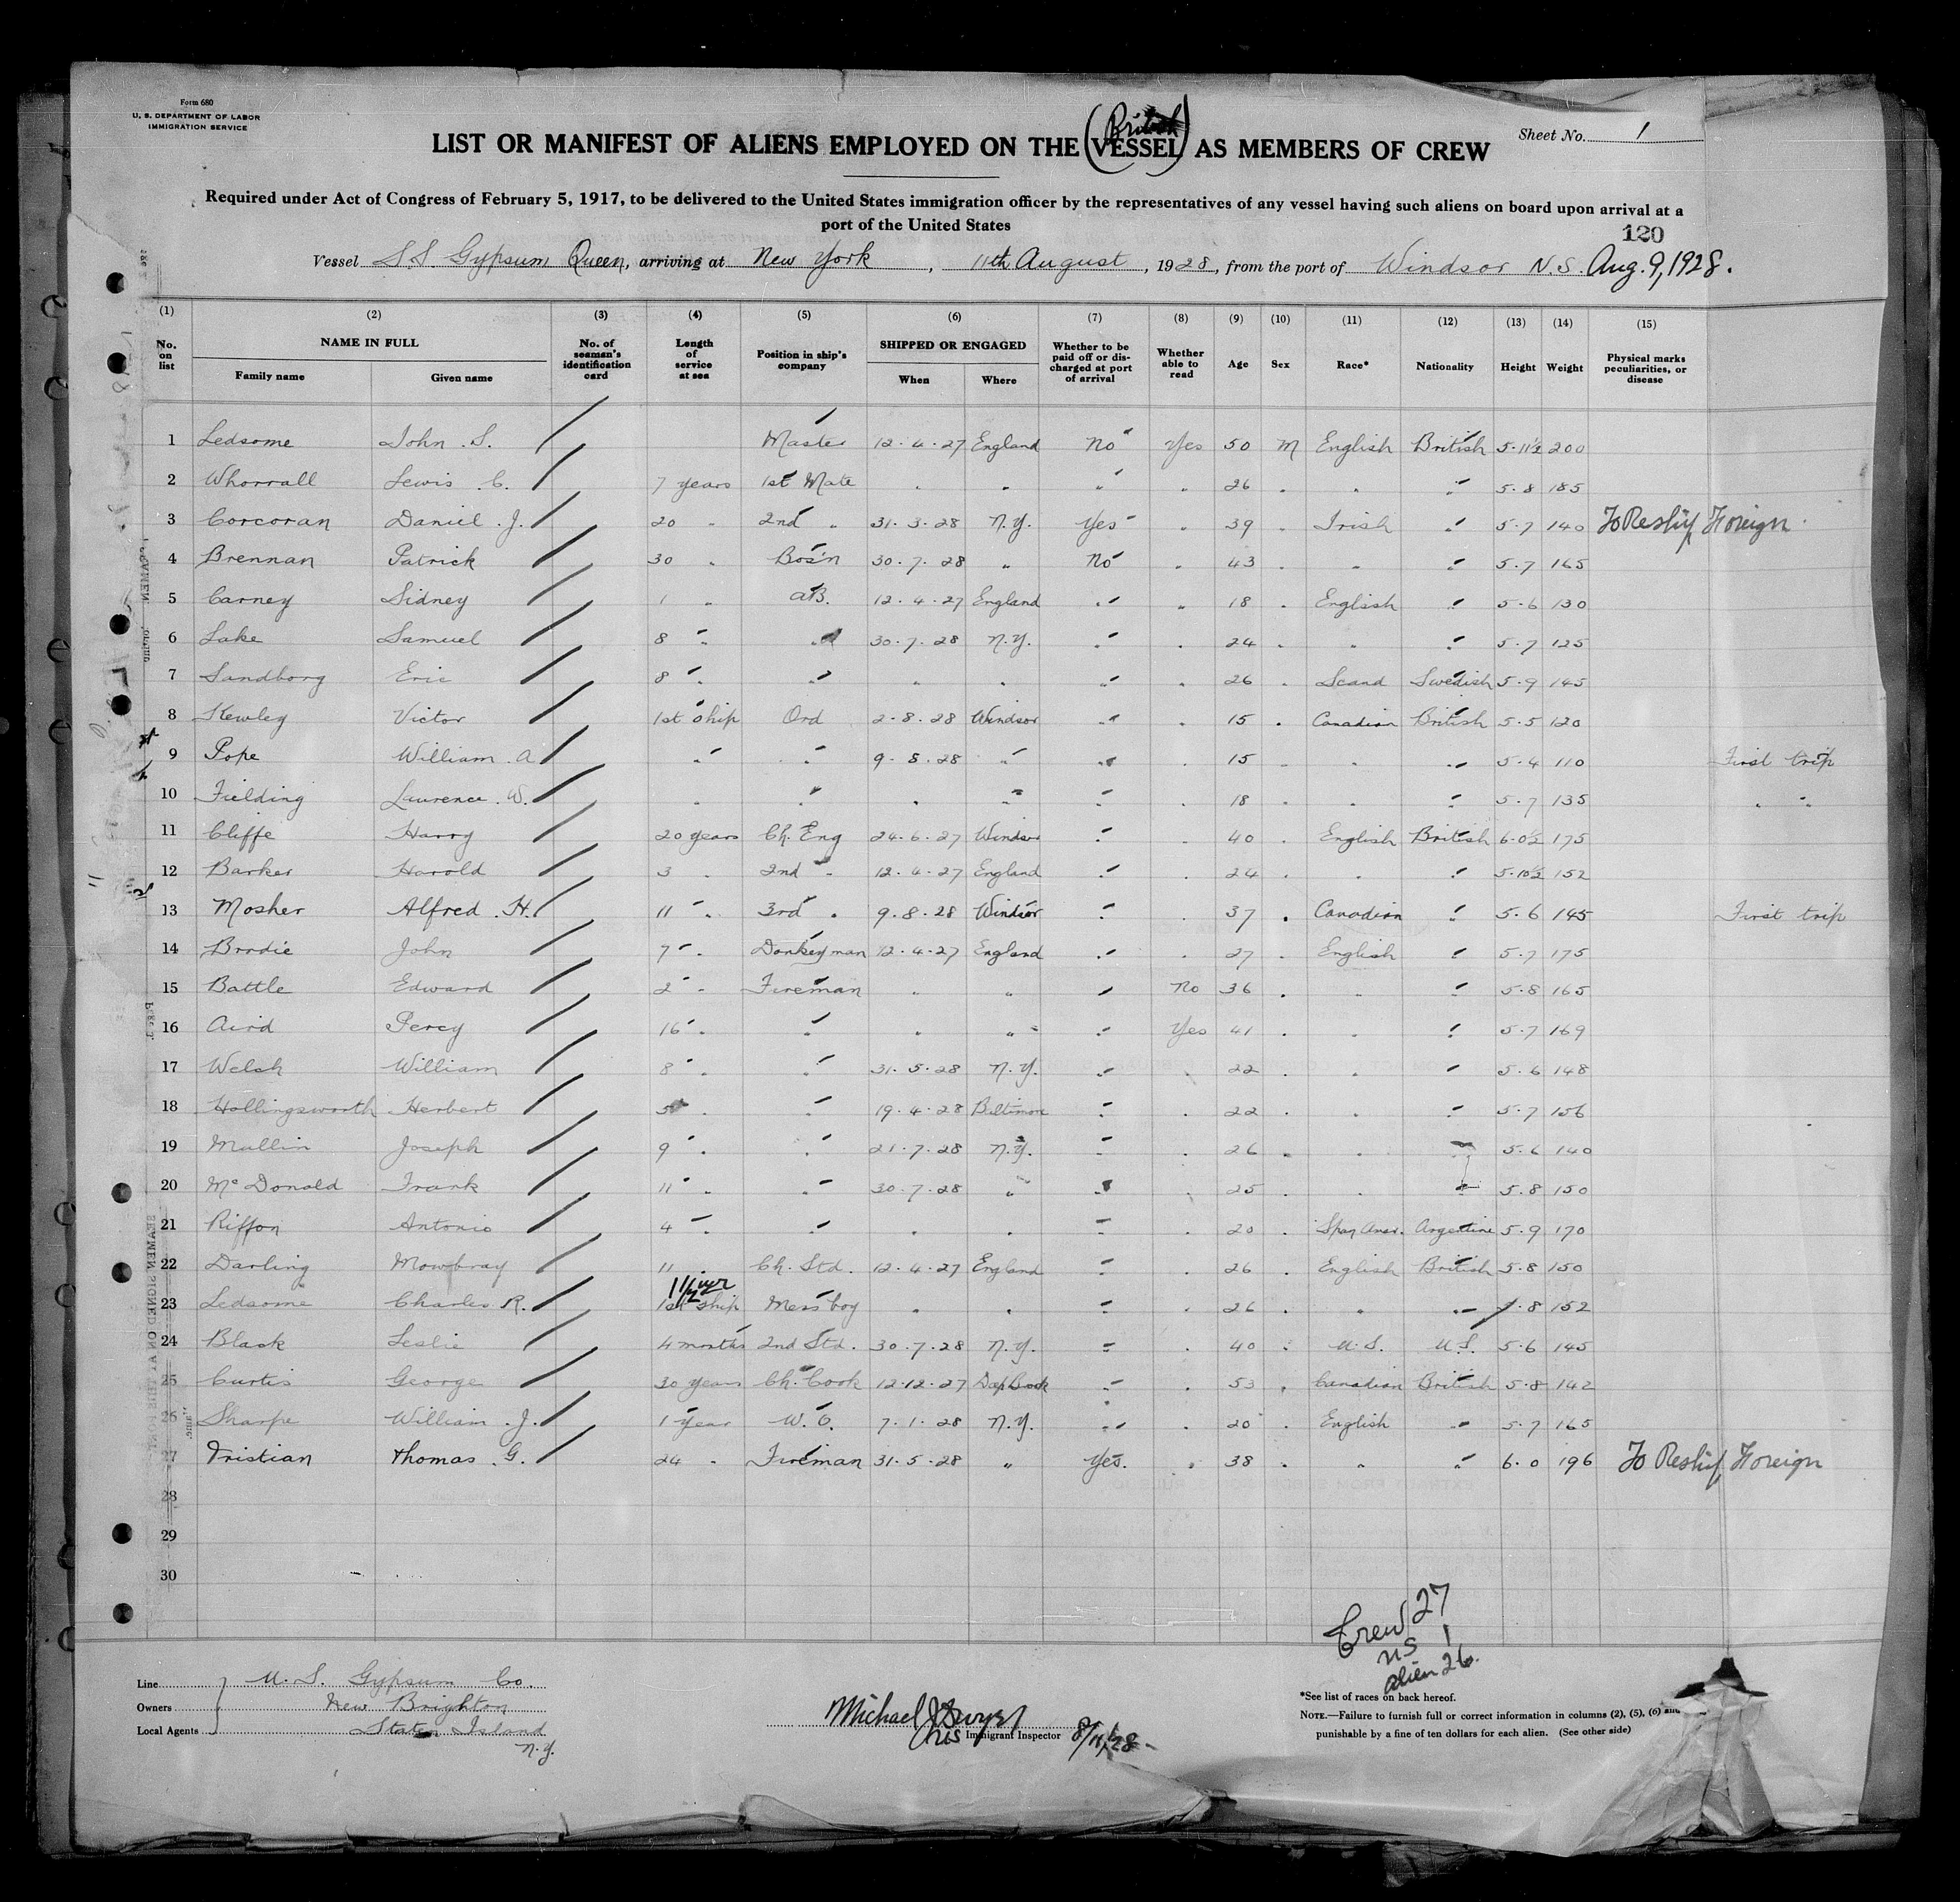 Form 680
U. S. DEPARTMENT OF LABOR
IMMIGRATION SERVICE
Sheet No. 1
(British)
LIST OR MANIFEST OF ALIENS EMPLOYED ON THE (VESSEL) AS MEMBERS OF CREW
Required under Act of Congress of February 5, 1917, to be delivered to the United States immigration officer by the representatives of any vessel having such aliens on board upon arrival at a
port of the United States
120
Vessel S.S. Gypsum Queen, arriving at New York, 11th August, 1928, from the port of Windsor N.S. Aug. 9, 1928.
(1) (2) (3) (4) (5) (6) (7) (8) (9) (10) (11) (12) (13) (14) (15)
No. on list NAME IN FULL Family name Given name No. of seaman's identification card Length of service at sea Position in ship's company SHIPPED OR ENGAGED When Where Whether to be paid off or discharged at port of arrival Whether able to read Age Sex Race* Nationality Height Weight Physical marks peculiarities, or disease
1 Ledsome John . S. Master 12.4.27 England No Yes 50 M English British 5.11½ 200
2 Whorrall Lewis . C. 7 years 1st Mate " " " " 26 " " " 5.8 185
3 Corcoran Daniel . J. 20 " 2nd " 31.3.28 N.Y. Yes " 39 " Irish " 5.7 140 To Reship Foreign
4 Brennan Patrick 30 " Bos'n 30.7.28 " No " 43 " " " 5.7 165
5 Carney Sidney 1 " A.B. 12.4.27 England " " 18 " English " 5.6 130
6 Lake Samuel 8 " " 30.7.28 N.Y. " " 24 " " " 5.7 125
7 Sandborg Eric 8 " " " " " " 26 " Scand Swedish 5.9 145
8 Kewley Victor 1st ship Ord 2.8.28 Windsor " " 15 " Canadian British 5.5 120
9 Pope William . A " " 9.8.28 " " " 15 " " " 5.4 110 First trip
10 Fielding Laurence . W. " " " " " " 18 " " " 5.7 135 " "
11 Cliffe Harry 20 years Ch. Eng 24.6.27 Windsor " " 40 " English British 6.0½ 175
12 Barker Harold 3 " 2nd " 12.4.27 England " " 24 " " " 5.10½ 152
13 Mosher Alfred . H. 11 " 3rd " 9.8.28 Windsor " " 37 " Canadian " 5.6 145 First trip
14 Brodie John 7 " Donkeyman 12.4.27 England " " 27 " English " 5.7 175
15 Battle Edward 2 " Fireman " " " No 36 " " " 5.8 165
16 Aird Percy 16 " " " " " Yes 41 " " " 5.7 169
17 Welsh William 8 " " 31.5.28 N.Y. " " 22 " " " 5.6 148
18 Hollingsworth Herbert 5 " " 19.4.28 Biltimore " " 22 " " " 5.7 156
19 Mullin Joseph 9 " " 21.7.28 N.Y. " " 26 " " " 5.6 140
20 McDonald Frank 11 " " 30.7.28 " " " 25 " " " 5.8 150
21 Riffon Antonio 4 " " " " " " 20 " Span Amer. Argentine 5.9 170
22 Darling Mowbray 11 " Ch. Std. 12.4.27 England " " 26 " English British 5.8 150
23 Ledsome Charles . R. 1st ship Mess boy " " " " 26 " " " .8 152
24 Black Leslie 4 months 2nd Std. 30.7.28 N.Y. " " 40 " U.S. U.S. 5.6 145
25 Curtis George 30 years Ch. Cook 12.12.27 " " 53 " Canadian British 5.8 142
26 Sharpe William . J. 1 year 7.1.28 N.Y. " " 20 " English " 5.7 165
27 Tristian Thomas . G. 24 " Fireman 31.5.28 " Yes. " 38 " " " 6.0 196 To Reship Foreign
28
29
30
Crew 27
US 1
alien 26.
Line U. S. Gypsum Co.
Owners New Brighton
Local Agents Staten Island
N.Y.
Michael J Dwyer
Immigrant Inspector 8/11/28
*See list of races on back hereof.
NOTE.—Failure to furnish full or correct information in columns (2), (5), (6) and
punishable by a fine of ten dollars for each alien. (See other side)